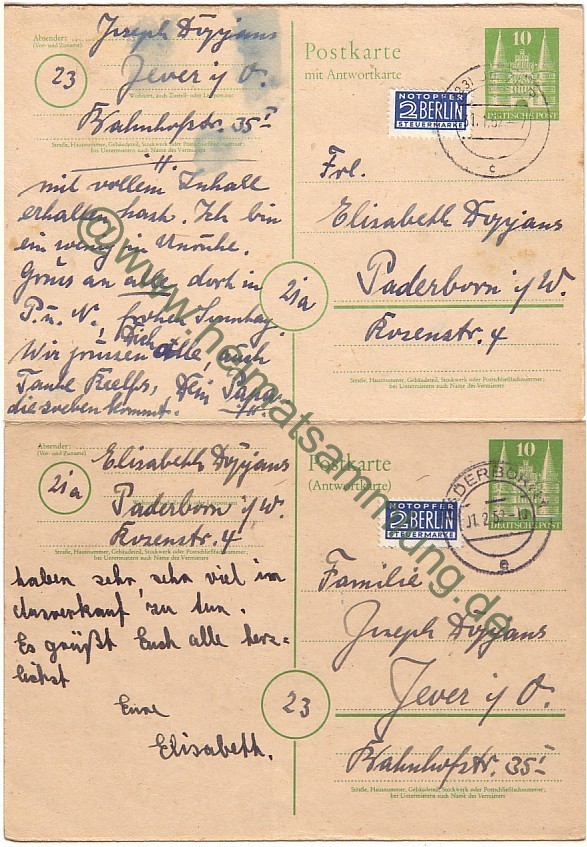 Absender:
(Vor- und Zuname)
Joseph Döpjans
23
Jever i/O.
Wohnort, auch Zustell- oder Leitpostamt
Bahnhofstr. 35 I
Straße, Hausnummer, Gebäudeteil, Stockwerk oder Postschließfachnummer;
bei Untermietern auch Name des Vermieters
mit vollem Inhalt
erhalten hast. Ich bin
ein wenig in Unruhe.
Gruss an alle dort in
P. u. N., frohen Sonntag.
Wir grüssen Dich alle, auch
Tante
die soeben kommt.
Dein Papa
Postkarte
mit Antwortkarte
NOTOPFER
2 BERLIN
STEUERMARKE
10
DEUTSCHE POST
c
Frl.
Elisabeth Döpjans
21a
Paderborn i/W.
Rosenstr. 4
Straße, Hausnummer, Gebäudeteil, Stockwerk oder Postschließfachnummer;
bei Untermietern auch Name des Vermieters
Absender:
(Vor- und Zuname)
Elisabeth Döpjans
21a
Paderborn i/W.
Rosenstr. 4
Straße, Hausnummer, Gebäudeteil, Stockwerk oder Postschließfachnummer;
bei Untermietern auch Name des Vermieters
haben sehr, sehr viel im
Ausverkauf zu tun.
Es grüßt Euch alle herz-
lichst
Eure
Elisabeth.
Postkarte
(Antwortkarte)
NOTOPFER
2 BERLIN
STEUERMARKE
10
DEUTSCHE POST
PADERBORN
e
Familie
Joseph Döpjans
23
Jever i/O.
Bahnhofstr. 35 I
Straße, Hausnummer, Gebäudeteil, Stockwerk oder Postschließfachnummer;
bei Untermietern auch Name des Vermieters
@www.heimatsammlung.de